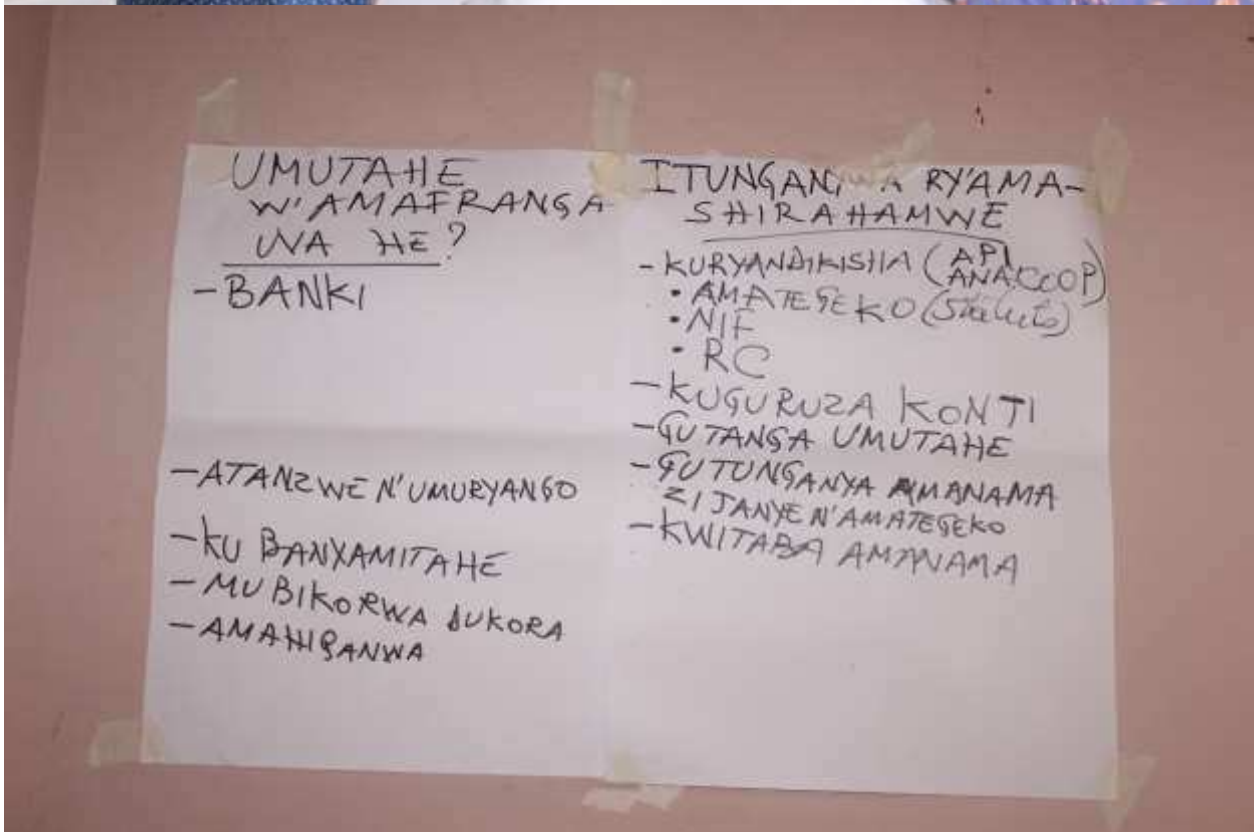 UMUTAHE
W'AMAFRANGA
UVA HE?
-BANKI
-ATANZWE N'UMURYANGO
-KU BANXAMITAHE
-MU BIKORWA DUKORA
-AMAHIGANWA
RY'AMA-
SHIRAHAMWE
-KURYANDIKISHA (API
ANACOOP)
•AMATEGEKO (Statuts)
•NIF
•RC
-KUGURUZA KONTI
-GUTANGA UMUTAHE
-GUTUNGANYA AMANAMA
ZIJANYE N'AMATEGEKO
-KWITABA AMANAMA